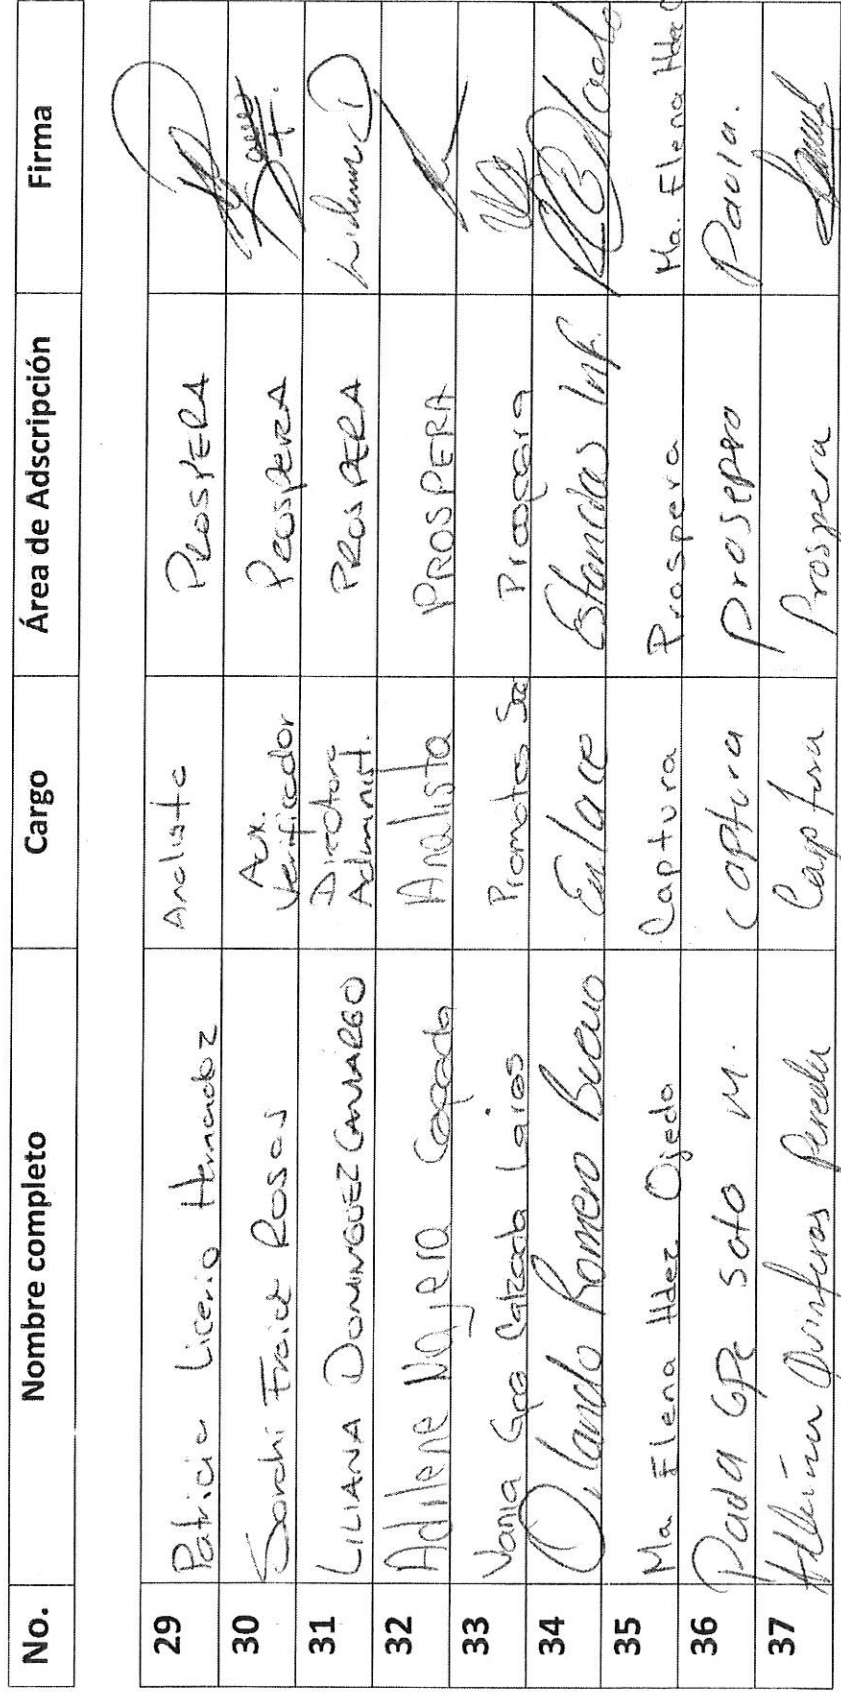 No. Nombre completo Cargo Área de Adscripción Firma
29 Patricia Licerio Hernandez Analista PROSPERA
30 Rosas Aux. Verificador PROSPERA
31 LILIANA DOMINGUEZ CAMARGO Directora Administ. PROSPERA
32 Adilene Najera Analista PROSPERA
33 Vania Gpa Calzada Larios Promotor Soc Prospera
34 Orlando Romero Bueno Enlace Estancias Inf.
35 Ma Elena Hdez Ojeda Captura Prospera Ma. Elena Hdez O
36 Paola GPe Soto M. Captura Prosepra Paola.
37 Quinteros Pereda Captura Prospera